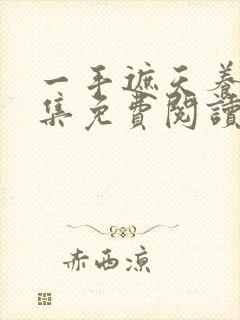 一手遮天養
集免費閱讀
赤西凉